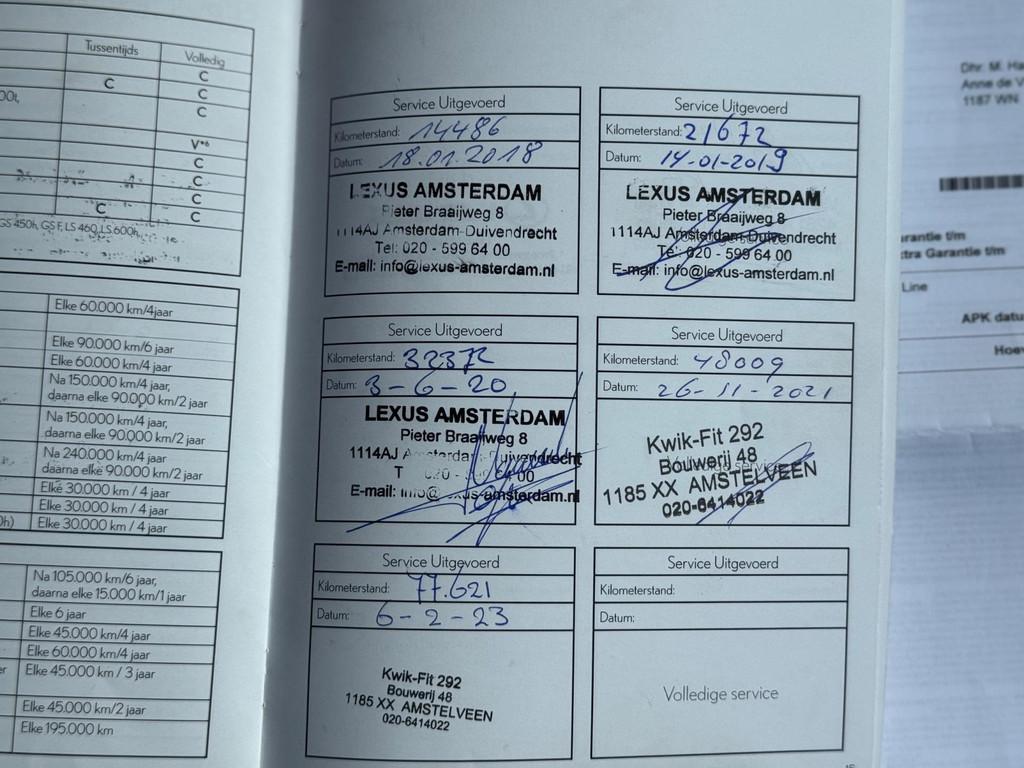 Tussentijds Volledig
C
C C
00t, C
V*6
C
C
C
C C
GS 450h, GS F, LS 460, LS 600h,
Elke 60.000 km/4jaar
Elke 90.000 km/6 jaar
Elke 60.000 km/4 jaar
Na 150.000 km/4 jaar,
daarna elke 90.000 km/2 jaar
Na 150.000 km/4 jaar,
daarna elke 90.000 km/2 jaar
Na 240.000 km/4 jaar
daarna elke 90.000 km/2 jaar
Elke 30.000 km / 4 jaar
Elke 30.000 km / 4 jaar
0h) Elke 30.000 km / 4 jaar
Na 105.000 km/6 jaar,
daarna elke 15.000 km/1 jaar
Elke 6 jaar
Elke 45.000 km/4 jaar
Elke 60.000 km/4 jaar
Elke 45.000 km / 3 jaar
Elke 45.000 km/2 jaar
Elke 195.000 km
Service Uitgevoerd
Kilometerstand: 14486
Datum: 18.01.2018
LEXUS AMSTERDAM
Pieter Braaijweg 8
1114AJ Amsterdam-Duivendrecht
Tel: 020 - 599 64 00
E-mail: info@lexus-amsterdam.nl
Service Uitgevoerd
Kilometerstand: 21672
Datum: 14-01-2019
LEXUS AMSTERDAM
Pieter Braaijweg 8
1114AJ Amsterdam-Duivendrecht
Tel: 020 - 599 64 00
E-mail: info@lexus-amsterdam.nl
Service Uitgevoerd
Kilometerstand: 32372
Datum: 3-6-20
LEXUS AMSTERDAM
Pieter Braaijweg 8
1114AJ Amsterdam-Duivendrecht
E-mail: info@lexus-amsterdam.nl
Service Uitgevoerd
Kilometerstand: 48009
Datum: 26-11-2021
Kwik-Fit 292
Bouwerij 48
1185 XX AMSTELVEEN
020-6414022
Service Uitgevoerd
Kilometerstand: 77.621
Datum: 6-2-23
Kwik-Fit 292
Bouwerij 48
1185 XX AMSTELVEEN
020-6414022
Service Uitgevoerd
Kilometerstand:
Datum:
Volledige service
Dhr. M. Ha
Anne de V
1187 WN
arantie t/m
tra Garantie t/m
Line
APK datu
Hoev